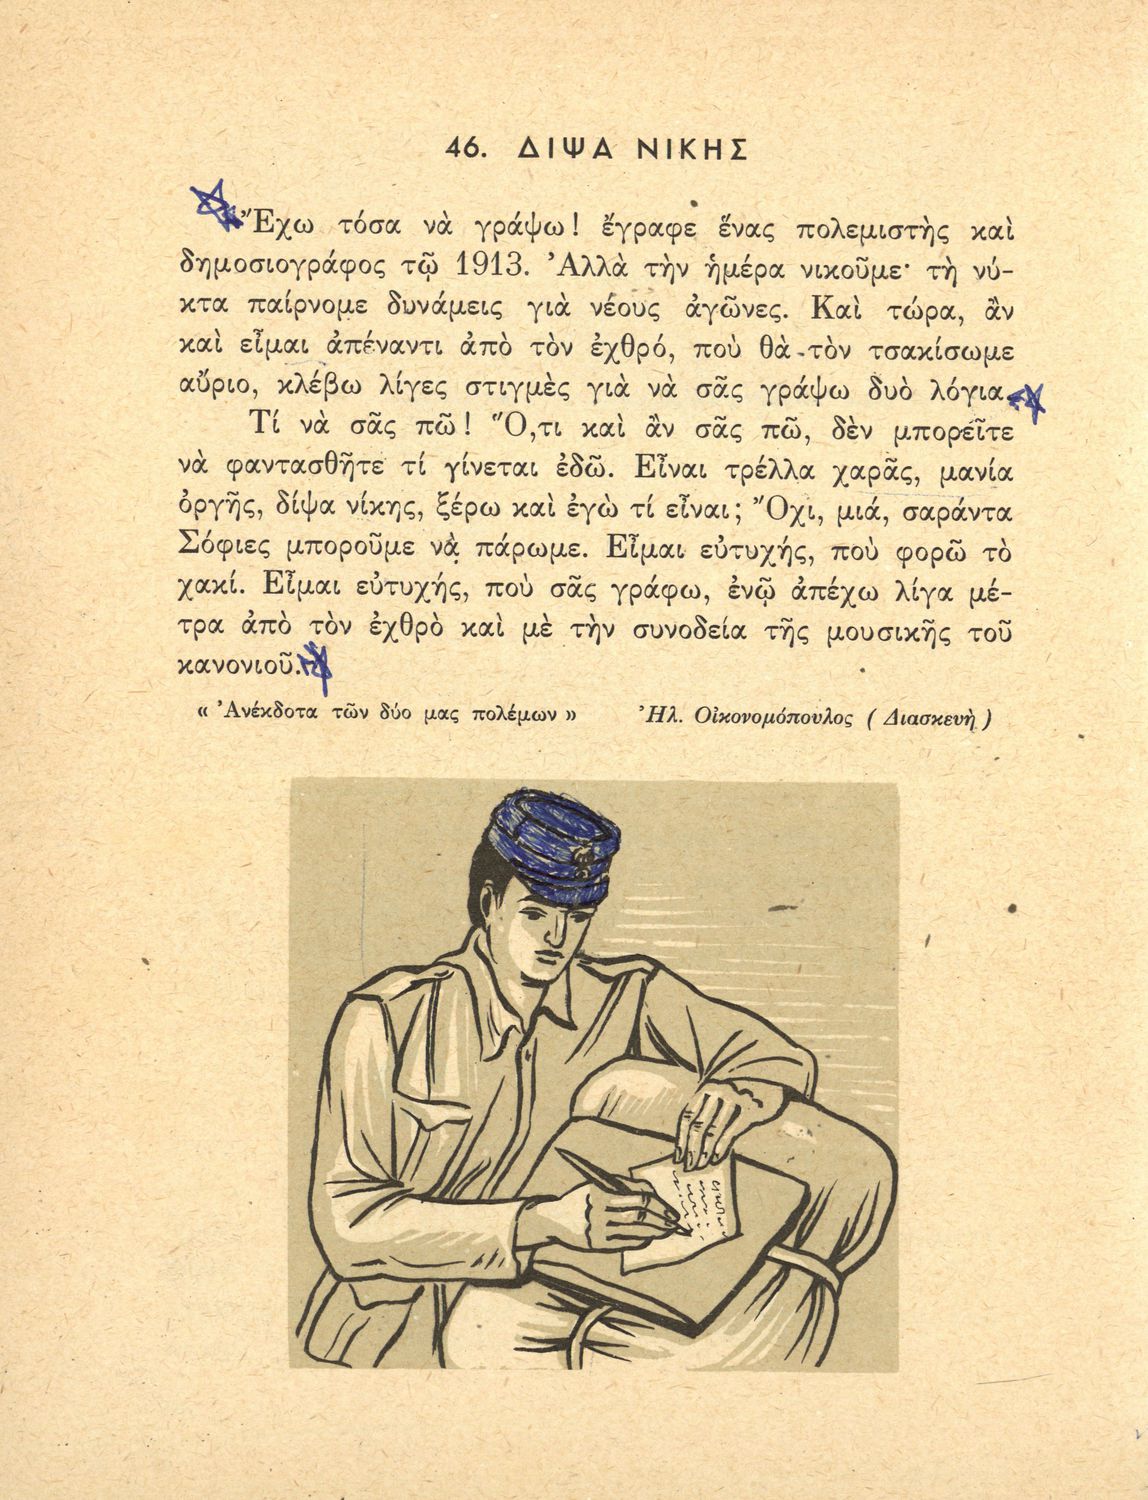 46. ΔΙΨΑ ΝΙΚΗΣ
Ἔχω τόσα νὰ γράψω! ἔγραφε ἕνας πολεμιστὴς καὶ
δημοσιογράφος τῷ 1913. Ἀλλὰ τὴν ἡμέρα νικοῦμε· τὴ νύ-
κτα παίρνομε δυνάμεις γιὰ νέους ἀγῶνες. Καὶ τώρα, ἂν
καὶ εἶμαι ἀπέναντι ἀπὸ τὸν ἐχθρό, ποὺ θὰ τὸν τσακίσωμε
αὔριο, κλέβω λίγες στιγμὲς γιὰ νὰ σᾶς γράψω δυὸ λόγια.
Τί νὰ σᾶς πῶ! Ὅ,τι καὶ ἂν σᾶς πῶ, δὲν μπορεῖτε
νὰ φαντασθῆτε τί γίνεται ἐδῶ. Εἶναι τρέλλα χαρᾶς, μανία
ὀργῆς, δίψα νίκης, ξέρω καὶ ἐγὼ τί εἶναι; Ὄχι, μιά, σαράντα
Σόφιες μποροῦμε νὰ πάρωμε. Εἶμαι εὐτυχής, ποὺ φορῶ τὸ
χακί. Εἶμαι εὐτυχής, ποὺ σᾶς γράφω, ἐνῷ ἀπέχω λίγα μέ-
τρα ἀπὸ τὸν ἐχθρὸ καὶ μὲ τὴν συνοδεία τῆς μουσικῆς τοῦ
κανονιοῦ.
« Ἀνέκδοτα τῶν δύο μας πολέμων » Ἠλ. Οἰκονομόπουλος ( Διασκευὴ )